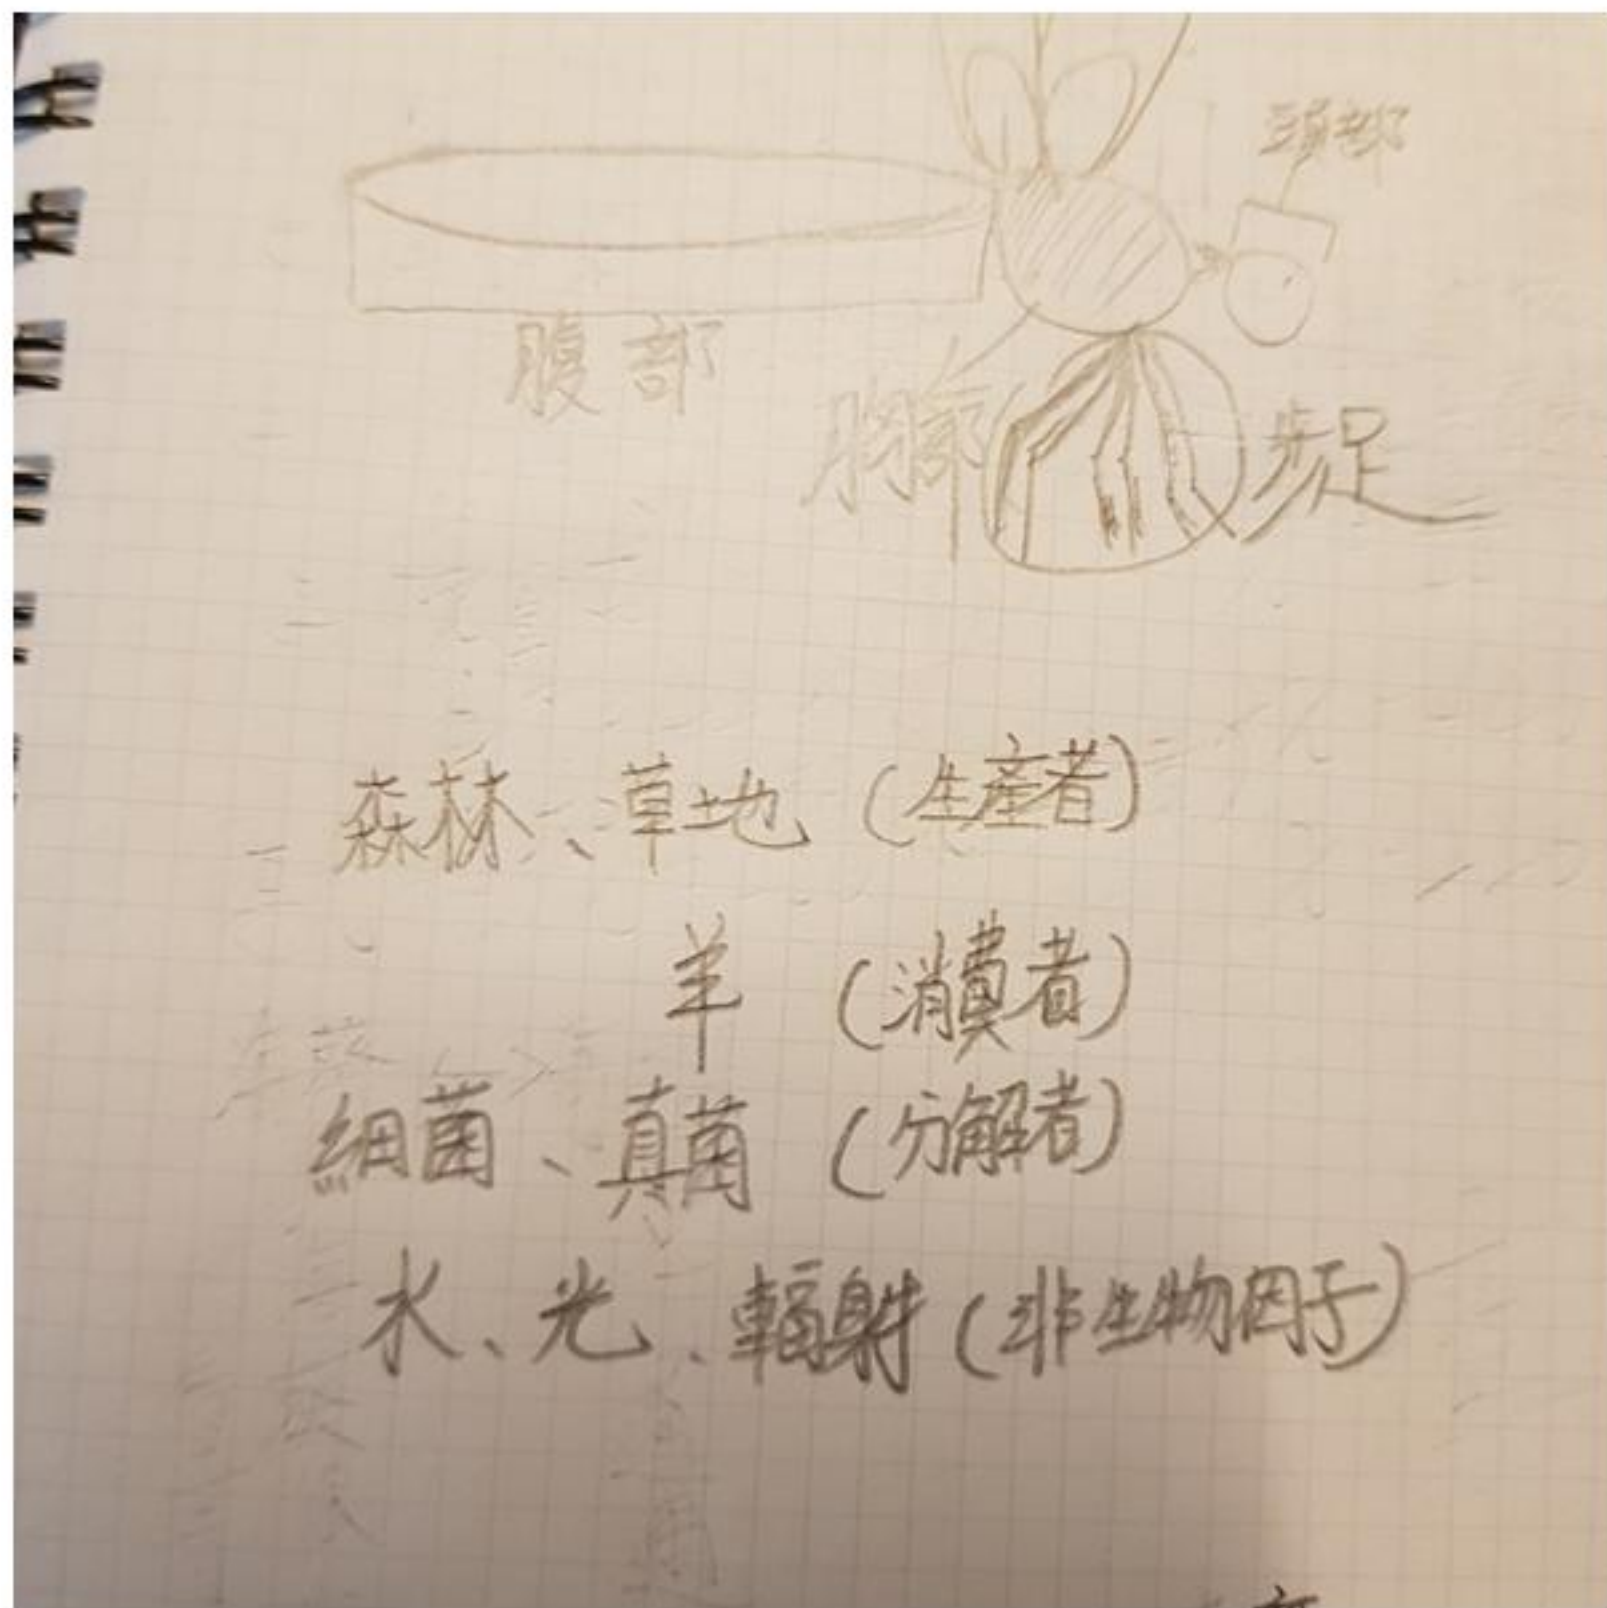 頭部
腹部
胸部
步足
森林、草地(生產者)
羊(消費者)
細菌、真菌(分解者)
水、光、輻射(非生物因子)